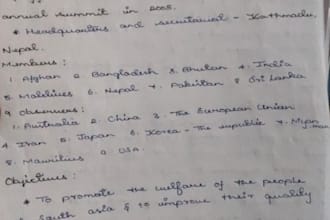 annual summit in 2005.
* Headquarters and secretariat - Kathmadu,
Nepal.
Members :
1. Afghan 2. Bangladesh 3. Bhutan 4. India
5. Maldives 6. Nepal 7. Pakistan 8 Sri Lanka
9 observers :
1. Australia 2. China 3. The European Union
4. Iran 5. Japan 6. Korea - The republic 7. Myan
mar
8. Mauritius 9. USA.
Objectives :
* To promote the welfare of the people
South asia & to improve their quality